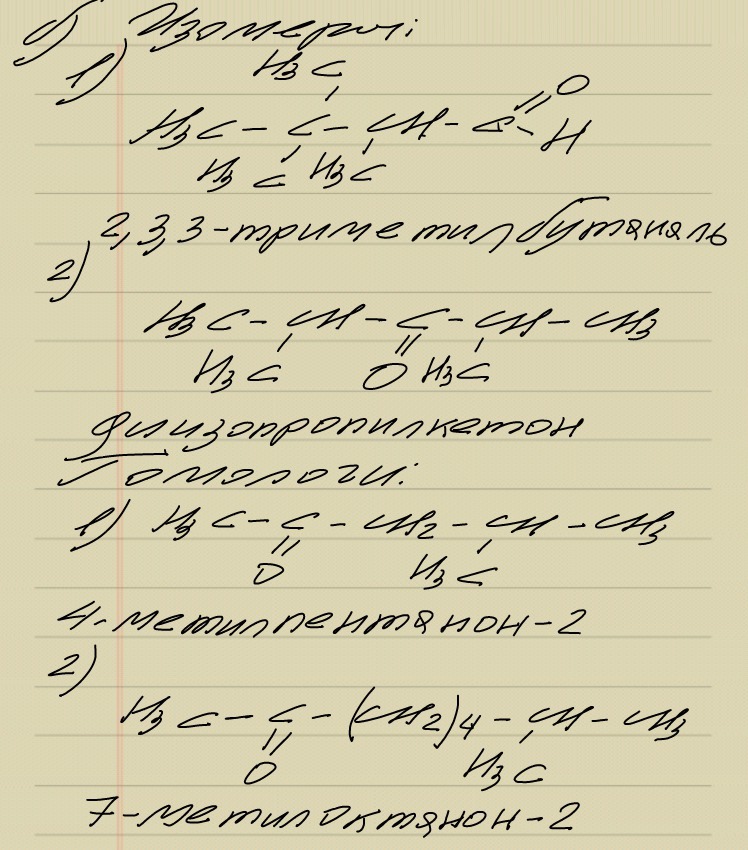 б) Изомеры:
1)
H₃C
H₃C – C – CH – C = O
– H
H₃C H₃C
2,3,3-триметилбутаналь
2)
H₃C – CH – C – CH – CH₃
H₃C O H₃C
Диизопропилкетон
Гомологи:
1) H₃C – C – CH₂ – CH – CH₃
O H₃C
4-метилпентанон-2
2)
H₃C – C – (CH₂)₄ – CH – CH₃
O H₃C
7-метилоктанон-2